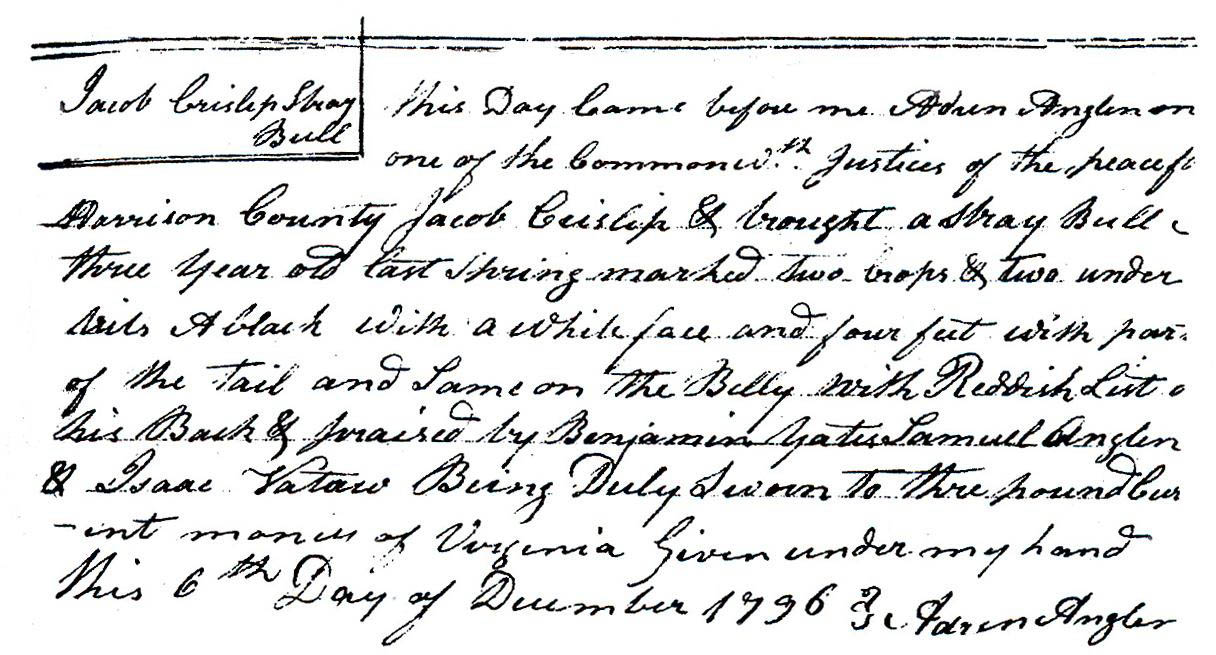 Jacob Crislip Stray
Bull
this Day Came before me Adren Anglen on
one of the Commonw.th Justices of the peace fo
Harrison County Jacob Crislip & brought a Stray Bull
three Year old last Spring marked two crops & two under
bits A black with a white face and four feet with par
of the Tail and Same on the Belly with Reddish List o
his Back & praised by Benjamin Yates Samuel Anglen
& Isaac Vataw Being Duly Sworn to thre pound Cur
-ent money of Virginia Given under my hand
this 6th Day of December 1796 Adren Anglen